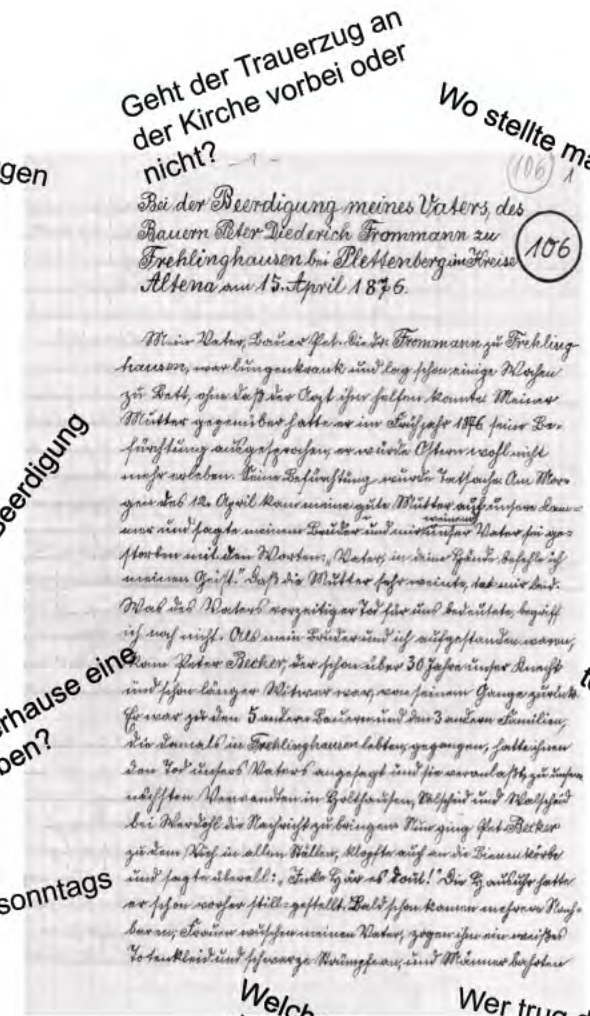 Geht der Trauerzug an
der Kirche vorbei oder
nicht?
Wo stellte ma
gen
- 1 -
(106) 1
Bei der Beerdigung meines Vaters, des
Bauern Peter Diederich Frommann zu
Frehlinghausen bei Plettenberg im Kreise
Altena am 15. April 1876.
106
Mein Vater, Bauer Pet. Diedr. Frommann zu Frehling-
hausen, war lungenkrank und lag schon einige Wochen
zu Bett, ohne daß der Arzt ihm helfen konnte. Meiner
Mutter gegenüber hatte er im Frühjahr 1876 seine Be-
fürchtung ausgesprochen, er würde Ostern wohl nicht
mehr erleben. Seine Befürchtung wurde Tatsache. Am Mor-
gen des 12. April kam meine gute Mutter auf unsere Kam-
mer und sagte meinem Bruder und mir weinend, unser Vater sei ge-
storben mit den Worten: "Vater, in deine Hände befehle ich
meinen Geist." Daß die Mutter sehr weinte, tat mir leid.
Was des Vaters vorzeitiger Tod für uns bedeutete, begriff
ich noch nicht. Als mein Bruder und ich aufgestanden waren,
kam Peter Becker, der schon über 30 Jahre unser Knecht
und schon länger Witwer war, von seinem Gange zurück.
Er war zu den 5 andern Bauern und den 3 andern Familien,
die damals in Frehlinghausen lebten, gegangen, hatte ihnen
den Tod unsers Vaters angesagt und sie veranlaßt, zu unsern
nächsten Verwandten in Holthausen, und
bei Werdohl die Nachricht zu bringen. Nun ging Pet. Becker
zu dem Vieh in allen Ställen, klopfte auch an die Bienenkörbe
und sagte überall: "Inke Här es dout!" Die Hausuhr hatte
er schon vorher still gestellt. Bald schon kamen mehrere Nach-
baren, Frauen wuschen meinen Vater, zogen ihm ein weißes
Totenkleid und schwarze Strümpfe an, und Männer bahrten
Beerdigung
rhause eine
ben?
t
sonntags
Welch
Wer trug d